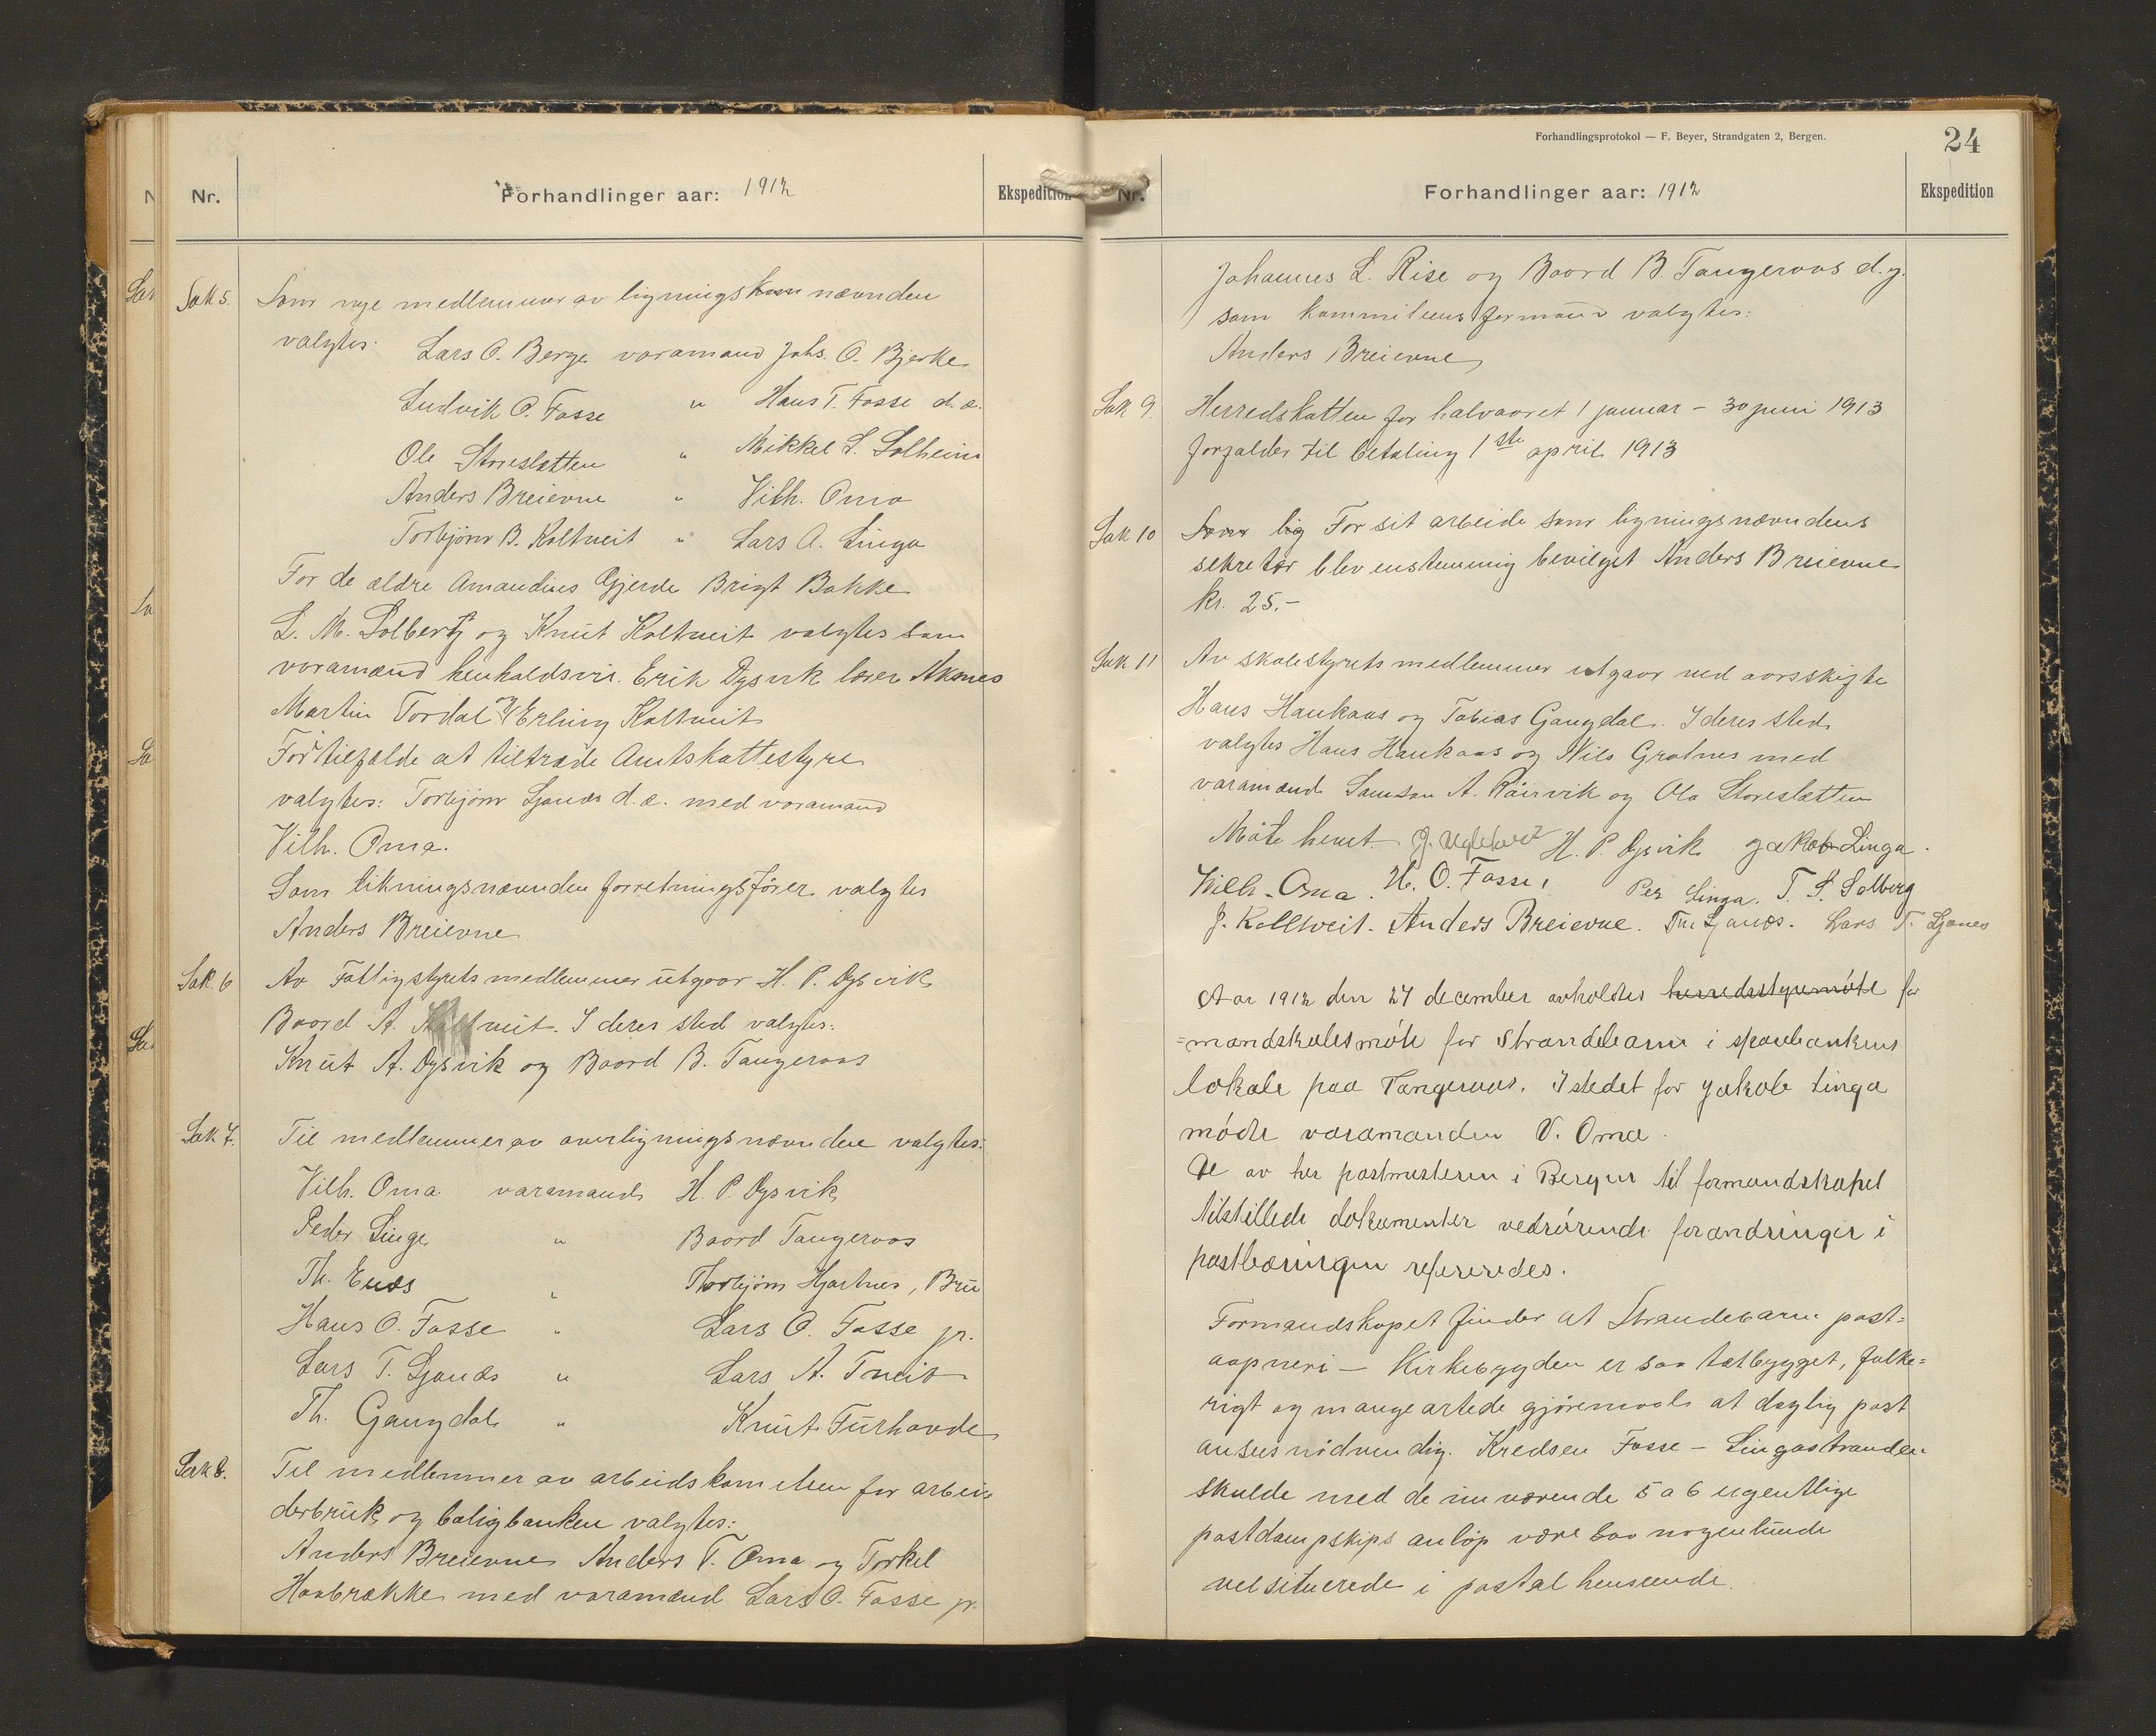 Nr.
Forhandlinger aar: 1912
Ekspedition
Sak 5. Som nye medlemmer av ligningskom nævnden
valgtes:
Lars O. Berge varamand Johs. O. Bjerke
Ludvik O. Fosse " Hans T. Fosse d. æ.
Ole Storeslætten " Mikkel S. Solheim
Anders Breievne " Vilh. Oma
Torbjörn B. Koltveit " Lars A. Linga
For de ældre Amandius Gjerde Brigt Bakke
L. M. Solberg og Knut Koltveit valgtes som
varamænd henholdsvis. Erik Dysvik lærer Aksnes
Martin Tordal og Erling Koltveit
For tilfælde at tiltræde Amtskattestyre
valgtes: Torbjörn Ljonæs d. æ. med varamand
Vilh. Oma.
Som likningsnævnden forretningsförer valgtes
Anders Breievne
Sak. 6 Av Fattigstyrets medlemmer utgaar H. P. Dysvik
Baard A. Koltveit. I deres sted valgtes:
Knut A. Dysvik og Baard B. Tangeraas
Sak 7. Til medlemmer av overligningsnævnden valgtes:
Vilh. Oma varamand H. P. Dysvik
Peder Linge " Baard Tangeraas
Th. Enæs " Thorbjörn Hjartnes, Bru
Hans O. Fosse " Lars O. Fosse jr.
Lars T. Ljonæs " Lars A. Tveit
Th. Gangdal " Knut Furhovde
Sak 8. Til medlemmer av arbeidskomiteen for arbei
derbruk og boligbanken valgtes:
Anders Breievne Anders T. Oma og Torkel
Haabrække med varamænd Lars O. Fosse jr.
Forhandlingsprotokol — F. Beyer, Strandgaten 2, Bergen.
24
Nr.
Forhandlinger aar: 1912
Ekspedition
Johannes L. Rise og Baard B. Tangeraas d. y.
som kommiteens formand valgtes:
Anders Breievne
Sak 9. Herredskatten for halvaaret 1 januar - 30 juni 1913
forfalder til betaling 1ste april 1913
Sak 10 Som lig For sit arbeide som ligningsnævndens
sekretær blev enstemmig bevilget Anders Breievne
kr. 25.-
Sak 11 Av skolestyrets medlemmer utgaar ved aarsskifte
Hans Haukaas og Tobias Gangdal. I deres sted
valgtes Hans Haukaas og Nils Grotnes med
varamænd Samson A. Röirvik og Ola Storeslætten
Möte hævet. H. P. Dysvik Jakob Linga.
Vilh. Oma. H. O. Fosse. Per Linga. T. S. Solberg
J. Kolltveit. Anders Breievne. Th. Ljonæs. Lars T. Ljones
Aar 1912 den 27 december avholdtes herredsstyremöte for
=mandskabsmöte for Strandebarm i sparebankens
lokale paa Tangeraas. Istedet for Jakob Linga
mödte varamanden V. Oma.
De av her postmesteren i Bergen til formandskapet
tilstillede dokumenter vedrörende forandringer i
postbæringen refereredes.
Formandskapet finder at Strandebarm post=
aapneri - Kirkebygden er saa tætbygget, folke=
rigt og mangeartede gjöremaal at daglig post
ansees nödvendig. Kredsen Fosse - Lingastranden
skulde med de nuværende 5 a 6 ugentlige
postdampskips anlöp være saa nogenlunde
vel situerede i postal henseende.